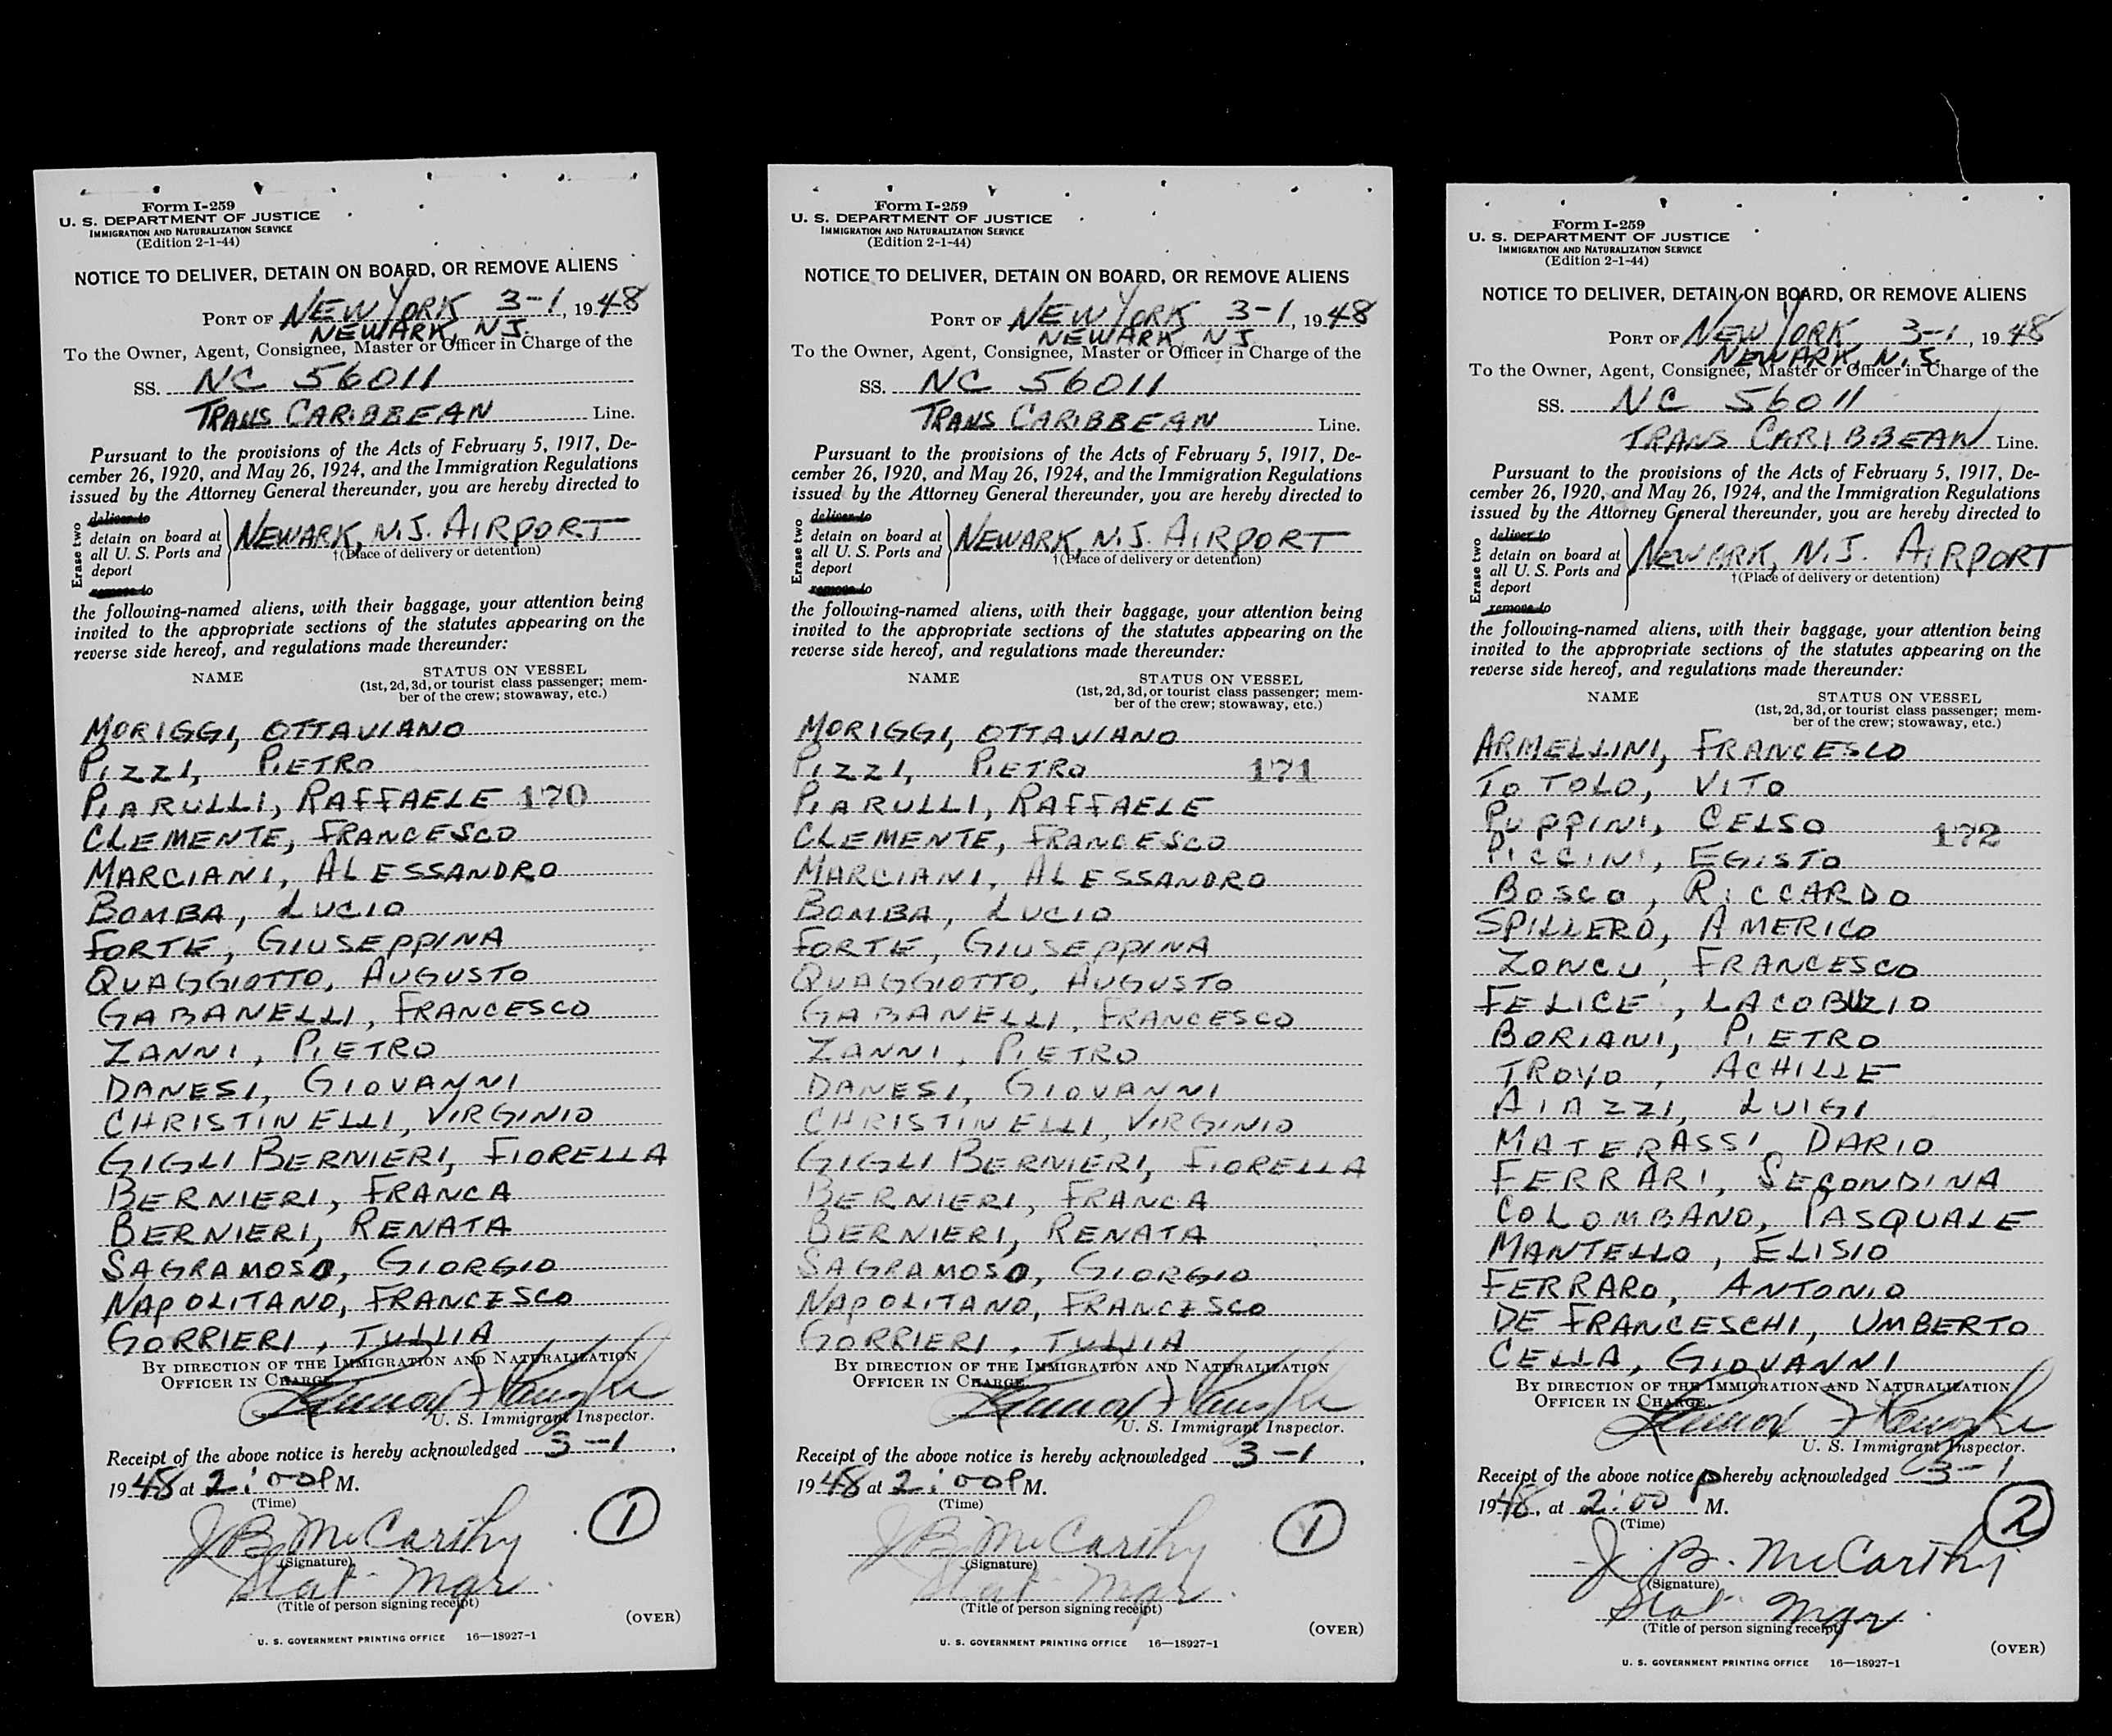 Form I-259
U. S. DEPARTMENT OF JUSTICE
IMMIGRATION AND NATURALIZATION SERVICE
(Edition 2-1-44)
NOTICE TO DELIVER, DETAIN ON BOARD, OR REMOVE ALIENS
PORT OF NEW YORK 3-1, 1948
NEWARK, N.J.
To the Owner, Agent, Consignee, Master or Officer in Charge of the
SS. NC 56011
TRANS CARIBBEAN Line.
Pursuant to the provisions of the Acts of February 5, 1917, De-
cember 26, 1920, and May 26, 1924, and the Immigration Regulations
issued by the Attorney General thereunder, you are hereby directed to
Erase two
deliver to
detain on board at
all U. S. Ports and
deport
remove to
NEWARK, N.J. AIRPORT
†(Place of delivery or detention)
the following-named aliens, with their baggage, your attention being
invited to the appropriate sections of the statutes appearing on the
reverse side hereof, and regulations made thereunder:
NAME STATUS ON VESSEL
(1st, 2d, 3d, or tourist class passenger; mem-
ber of the crew; stowaway, etc.)
MORIGGI, OTTAVIANO
PIZZI, PIETRO
PIARULLI, RAFFAELE 170
CLEMENTE, FRANCESCO
MARCIANI, ALESSANDRO
BOMBA, LUCIO
FORTE, GIUSEPPINA
QUAGGIOTTO, AUGUSTO
GABANELLI, FRANCESCO
ZANNI, PIETRO
DANESI, GIOVANNI
CHRISTINELLI, VIRGINIO
GIGLI BERNIERI, FIORELLA
BERNIERI, FRANCA
BERNIERI, RENATA
SAGRAMOSO, GIORGIO
NAPOLITANO, FRANCESCO
GORRIERI, TULLIA
BY DIRECTION OF THE IMMIGRATION AND NATURALIZATION
OFFICER IN CHARGE
U. S. Immigrant Inspector.
Receipt of the above notice is hereby acknowledged 3-1,
1948 at 2:00 P M.
(Time)
J B McCarthy
(Signature)
Stat. Mgr.
(Title of person signing receipt)
1
(OVER)
U. S. GOVERNMENT PRINTING OFFICE 16—18927-1
Form I-259
U. S. DEPARTMENT OF JUSTICE
IMMIGRATION AND NATURALIZATION SERVICE
(Edition 2-1-44)
NOTICE TO DELIVER, DETAIN ON BOARD, OR REMOVE ALIENS
PORT OF NEW YORK 3-1, 1948
NEWARK, N J
To the Owner, Agent, Consignee, Master or Officer in Charge of the
SS. NC 56011
TRANS CARIBBEAN Line.
Pursuant to the provisions of the Acts of February 5, 1917, De-
cember 26, 1920, and May 26, 1924, and the Immigration Regulations
issued by the Attorney General thereunder, you are hereby directed to
Erase two
deliver to
detain on board at
all U. S. Ports and
deport
remove to
NEWARK, N.J. AIRPORT
†(Place of delivery or detention)
the following-named aliens, with their baggage, your attention being
invited to the appropriate sections of the statutes appearing on the
reverse side hereof, and regulations made thereunder:
NAME STATUS ON VESSEL
(1st, 2d, 3d, or tourist class passenger; mem-
ber of the crew; stowaway, etc.)
MORIGGI, OTTAVIANO
PIZZI, PIETRO 171
PIARULLI, RAFFAELE
CLEMENTE, FRANCESCO
MARCIANI, ALESSANDRO
BOMBA, LUCIO
FORTE, GIUSEPPINA
QUAGGIOTTO, AUGUSTO
GABANELLI, FRANCESCO
ZANNI, PIETRO
DANESI, GIOVANNI
CHRISTINELLI, VIRGINIO
GIGLI BERNIERI, FIORELLA
BERNIERI, FRANCA
BERNIERI, RENATA
SAGRAMOSO, GIORGIO
NAPOLITANO, FRANCESCO
GORRIERI, TULLIA
BY DIRECTION OF THE IMMIGRATION AND NATURALIZATION
OFFICER IN CHARGE
U. S. Immigrant Inspector.
Receipt of the above notice is hereby acknowledged 3-1,
1948 at 2:00 P M.
(Time)
J B McCarthy
(Signature)
Stat. Mgr.
(Title of person signing receipt)
1
(OVER)
U. S. GOVERNMENT PRINTING OFFICE 16—18927-1
Form I-259
U. S. DEPARTMENT OF JUSTICE
IMMIGRATION AND NATURALIZATION SERVICE
(Edition 2-1-44)
NOTICE TO DELIVER, DETAIN ON BOARD, OR REMOVE ALIENS
PORT OF NEW YORK 3-1, 1948
NEWARK, N.J.
To the Owner, Agent, Consignee, Master or Officer in Charge of the
SS. NC 56011
TRANS CARIBBEAN Line.
Pursuant to the provisions of the Acts of February 5, 1917, De-
cember 26, 1920, and May 26, 1924, and the Immigration Regulations
issued by the Attorney General thereunder, you are hereby directed to
Erase two
deliver to
detain on board at
all U. S. Ports and
deport
remove to
NEWARK, N.J. AIRPORT
†(Place of delivery or detention)
the following-named aliens, with their baggage, your attention being
invited to the appropriate sections of the statutes appearing on the
reverse side hereof, and regulations made thereunder:
NAME STATUS ON VESSEL
(1st, 2d, 3d, or tourist class passenger; mem-
ber of the crew; stowaway, etc.)
ARMELLINI, FRANCESCO
TOTOLO, VITO
PUPPINI, CELSO 172
PICCINI, EGISTO
BOSCO, RICCARDO
SPILLERO, AMERICO
ZONCU, FRANCESCO
FELICE, LACOBUZIO
BORIANI, PIETRO
TROVO, ACHILLE
AIAZZI, LUIGI
MATERASSI, DARIO
FERRARI, SECONDINA
COLOMBANO, PASQUALE
MANTELLO, ELISIO
FERRARO, ANTONIO
DE FRANCESCHI, UMBERTO
CELLA, GIOVANNI
BY DIRECTION OF THE IMMIGRATION AND NATURALIZATION
OFFICER IN CHARGE.
U. S. Immigrant Inspector.
Receipt of the above notice is hereby acknowledged 3-1
1948, at 2:00 P M.
(Time)
J. B. McCarthy
(Signature)
Stat. Mgr.
(Title of person signing receipt)
2
(OVER)
U. S. GOVERNMENT PRINTING OFFICE 16—18927-1